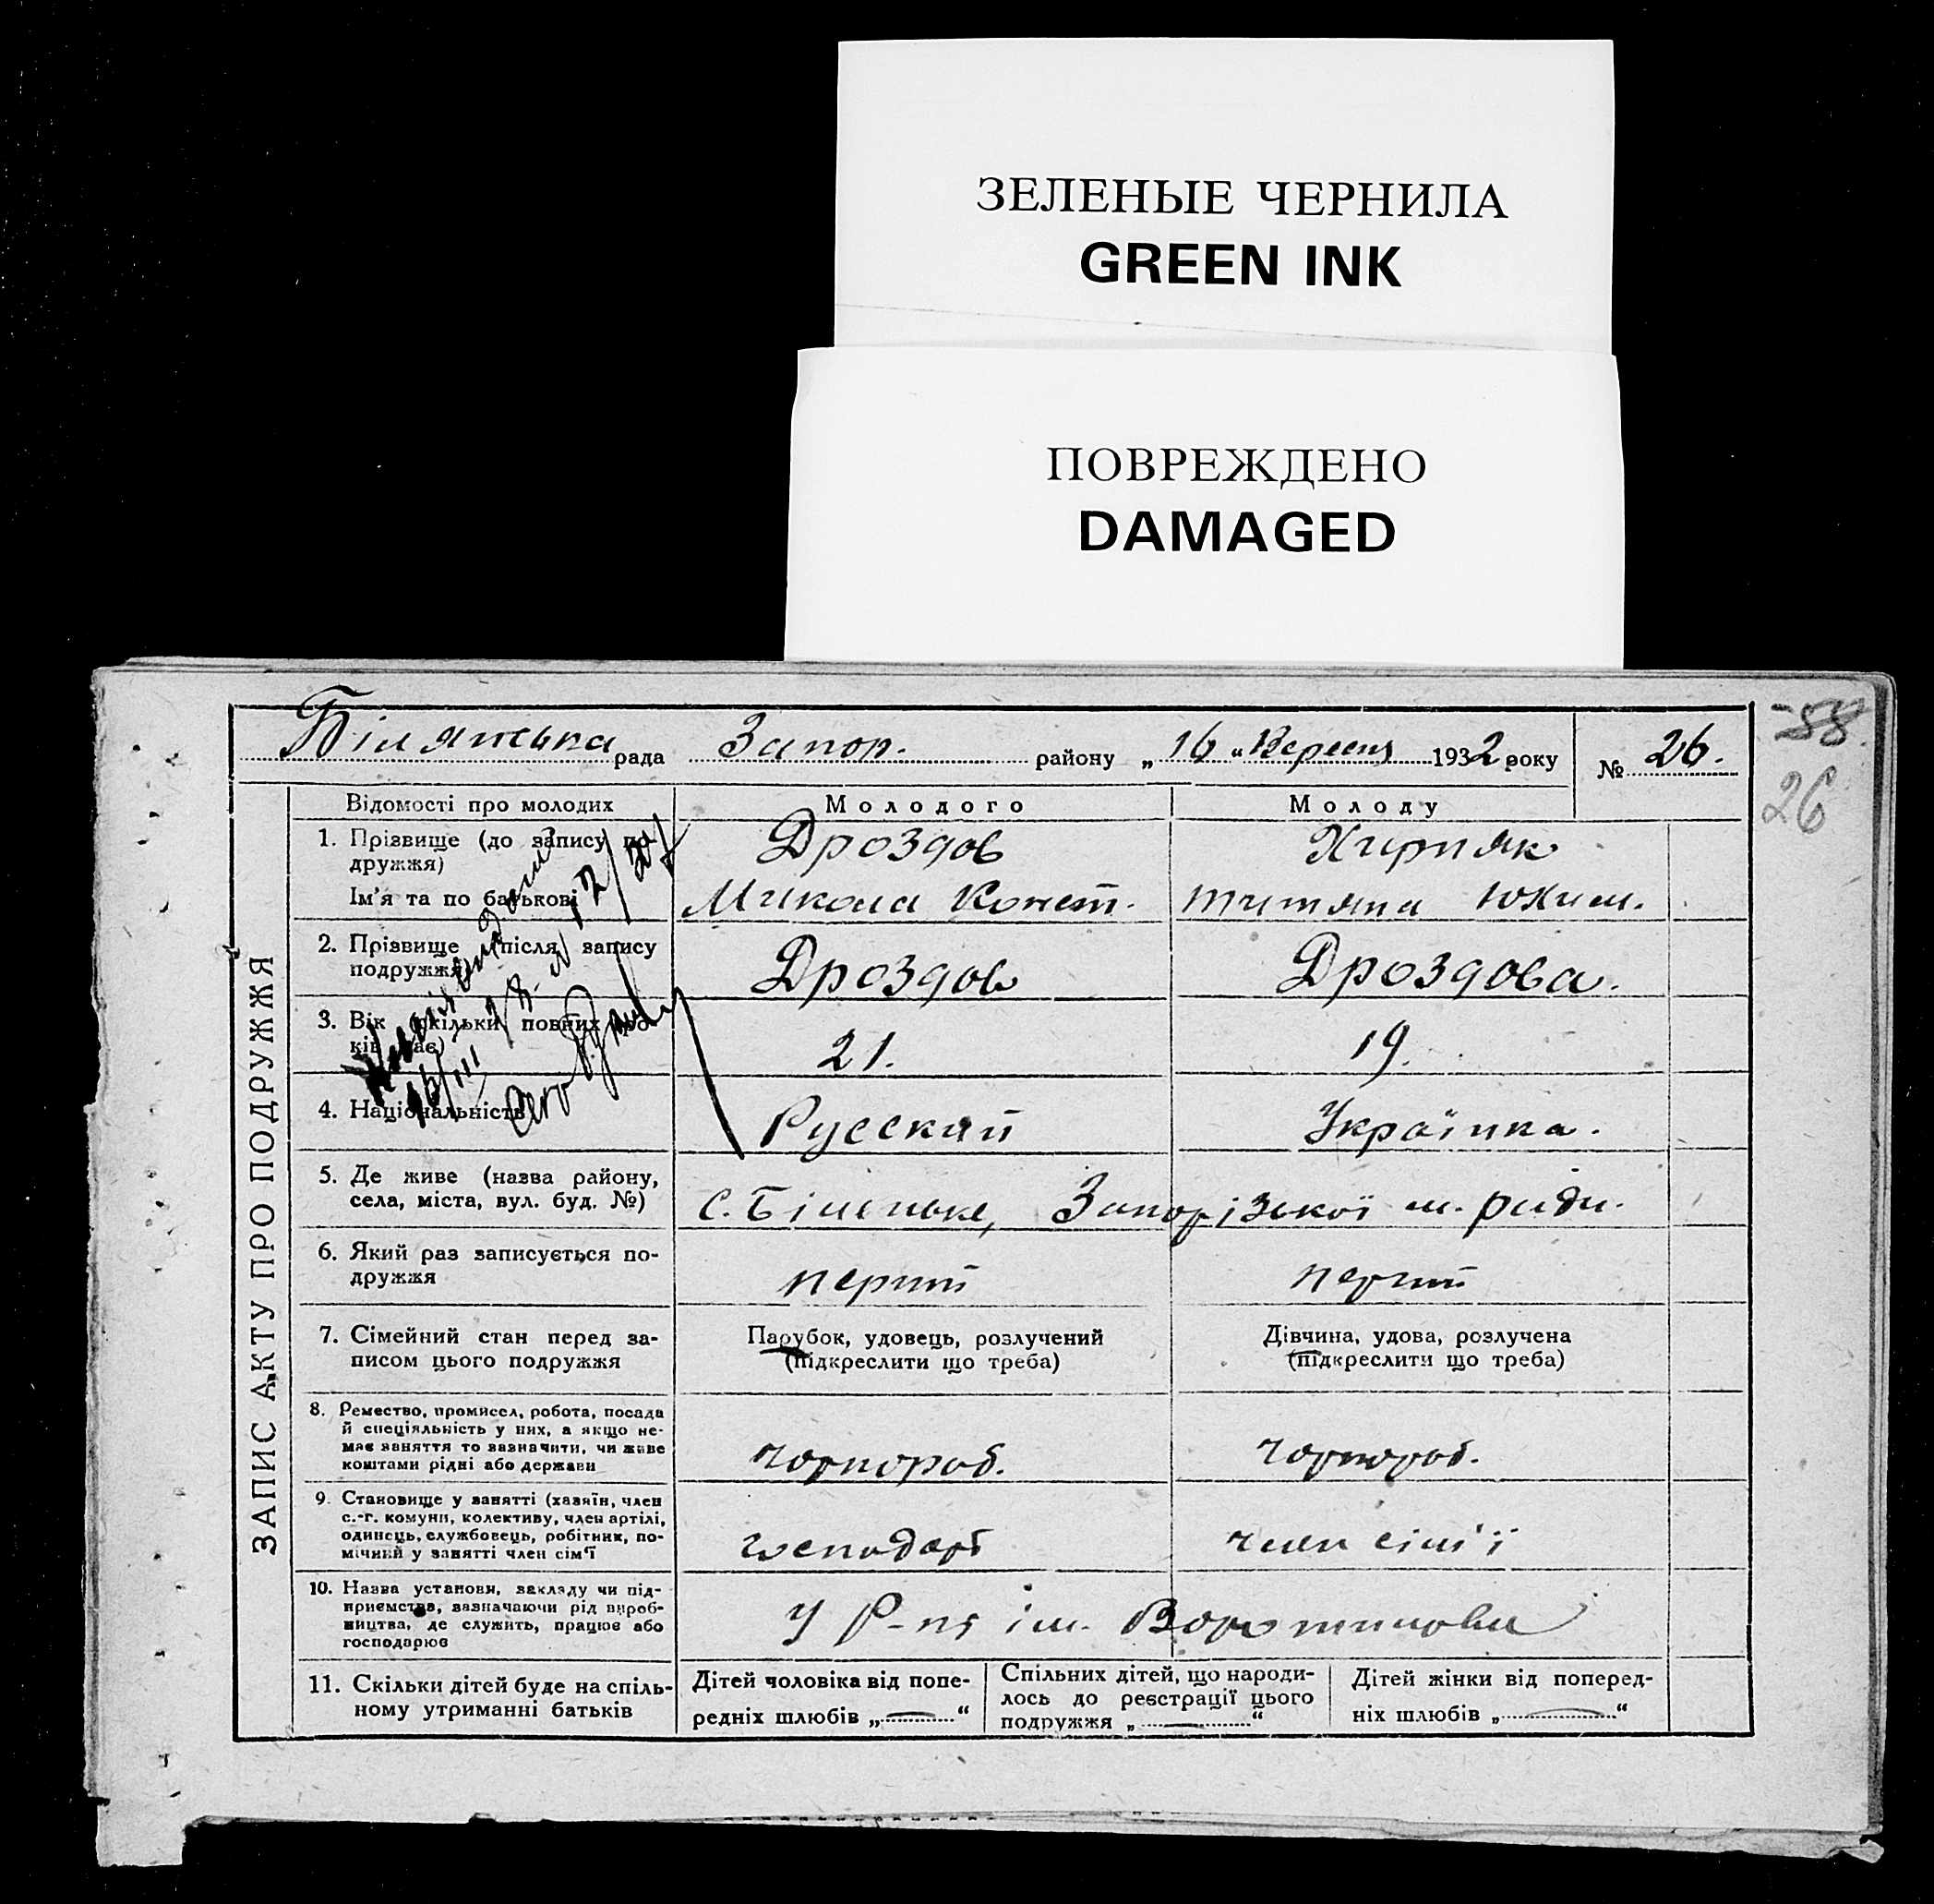 ЗЕЛЕНЫЕ ЧЕРНИЛА
GREEN INK
ПОВРЕЖДЕНО
DAMAGED
Білянська рада Запор. району „16“ Вересня 1932 року № 26.
58
26
ЗАПИС АКТУ ПРО ПОДРУЖЖЯ
Відомості про молодих Молодого Молоду
1. Прізвище (до запису по-
дружжя) Дроздов Хирняк
Ім'я та по батькові Микола Конст. Титяна Юхим.
2. Прізвище (після запису
подружжя) Дроздов Дроздова.
3. Вік (скільки повних ро-
ків має) 21. 19.
4. Національність Русский Українка.
5. Де живе (назва району,
села, міста, вул. буд. №) с. Біленьке, Запорізької м. ради.
6. Який раз записується по-
дружжя перший перший
7. Сімейний стан перед за-
писом цього подружжя
Парубок, удовець, розлучений
(підкреслити що треба)
Дівчина, удова, розлучена
(підкреслити що треба)
8. Ремество, промисел, робота, посада
й спеціяльність у них, а якщо не-
має заняття то зазначити, чи живе
коштами рідні або держави
чорнороб. чорнороб.
9. Становище у занятті (хазяїн, член
с.-г. комуни, колективу, член артілі,
одинець, службовець, робітник, по-
мічний у занятті член сім'ї
господар член сім'ї
10. Назва установи, закладу чи під-
приємства, зазначаючи рід вироб-
ництва, де служить, працює або
господарює
У ім.
11. Скільки дітей буде на спіль-
ному утриманні батьків
Дітей чоловіка від попе-
редніх шлюбів „—“
Спільних дітей, що народи-
лось до реєстрації цього
подружжя „—“
Дітей жінки від поперед-
ніх шлюбів „—“